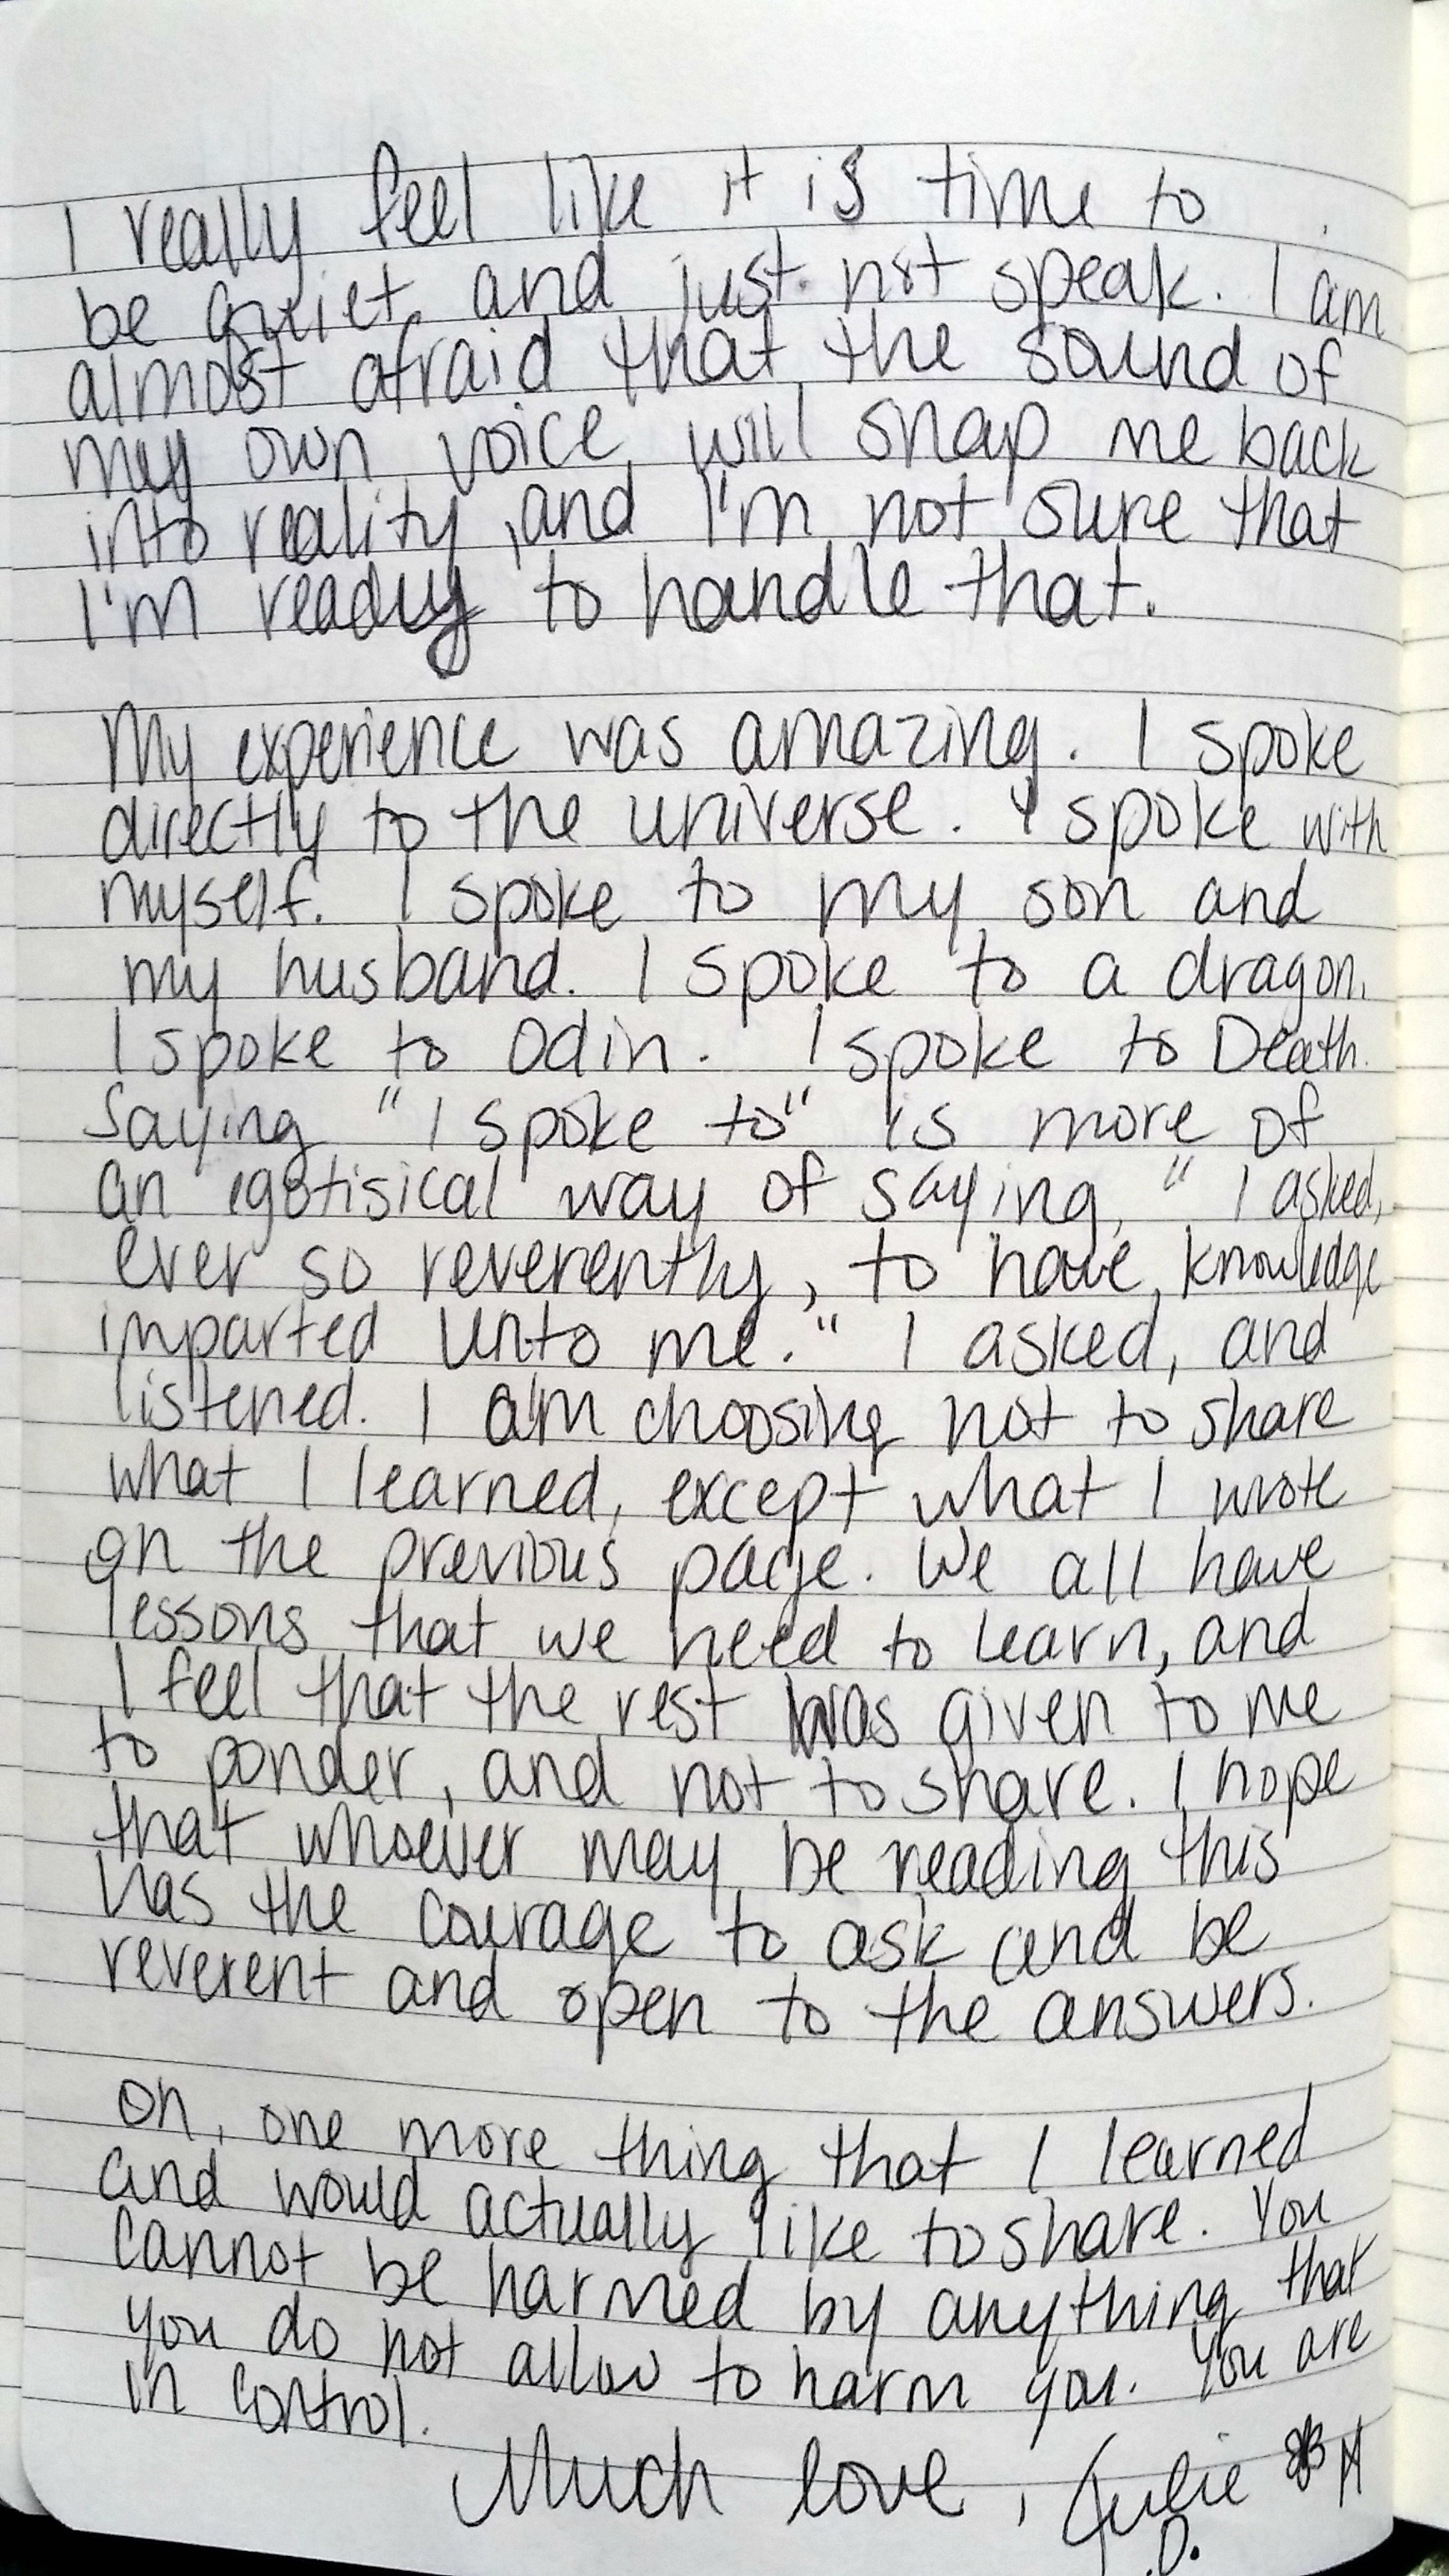 I really feel like it is time to
be quiet and just not speak. I am
almost afraid that the sound of
my own voice will snap me back
into reality, and I'm not sure that
I'm ready to handle that.
My experience was amazing. I spoke
directly to the universe. I spoke with
myself. I spoke to my son and
my husband. I spoke to a dragon.
I spoke to Odin. I spoke to Death.
Saying "I spoke to" is more of
an egotisical way of saying, "I asked,
ever so reverently, to have knowledge
imparted unto me." I asked, and
listened. I am choosing not to share
what I learned, except what I wrote
on the previous page. We all have
lessons that we need to learn, and
I feel that the rest was given to me
to ponder, and not to share. I hope
that whoever may be reading this
has the courage to ask and be
reverent and open to the answers.
Oh, one more thing that I learned
and would actually like to share. You
cannot be harmed by anything that
you do not allow to harm you. You are
in control.
Much love, Julie M
D.